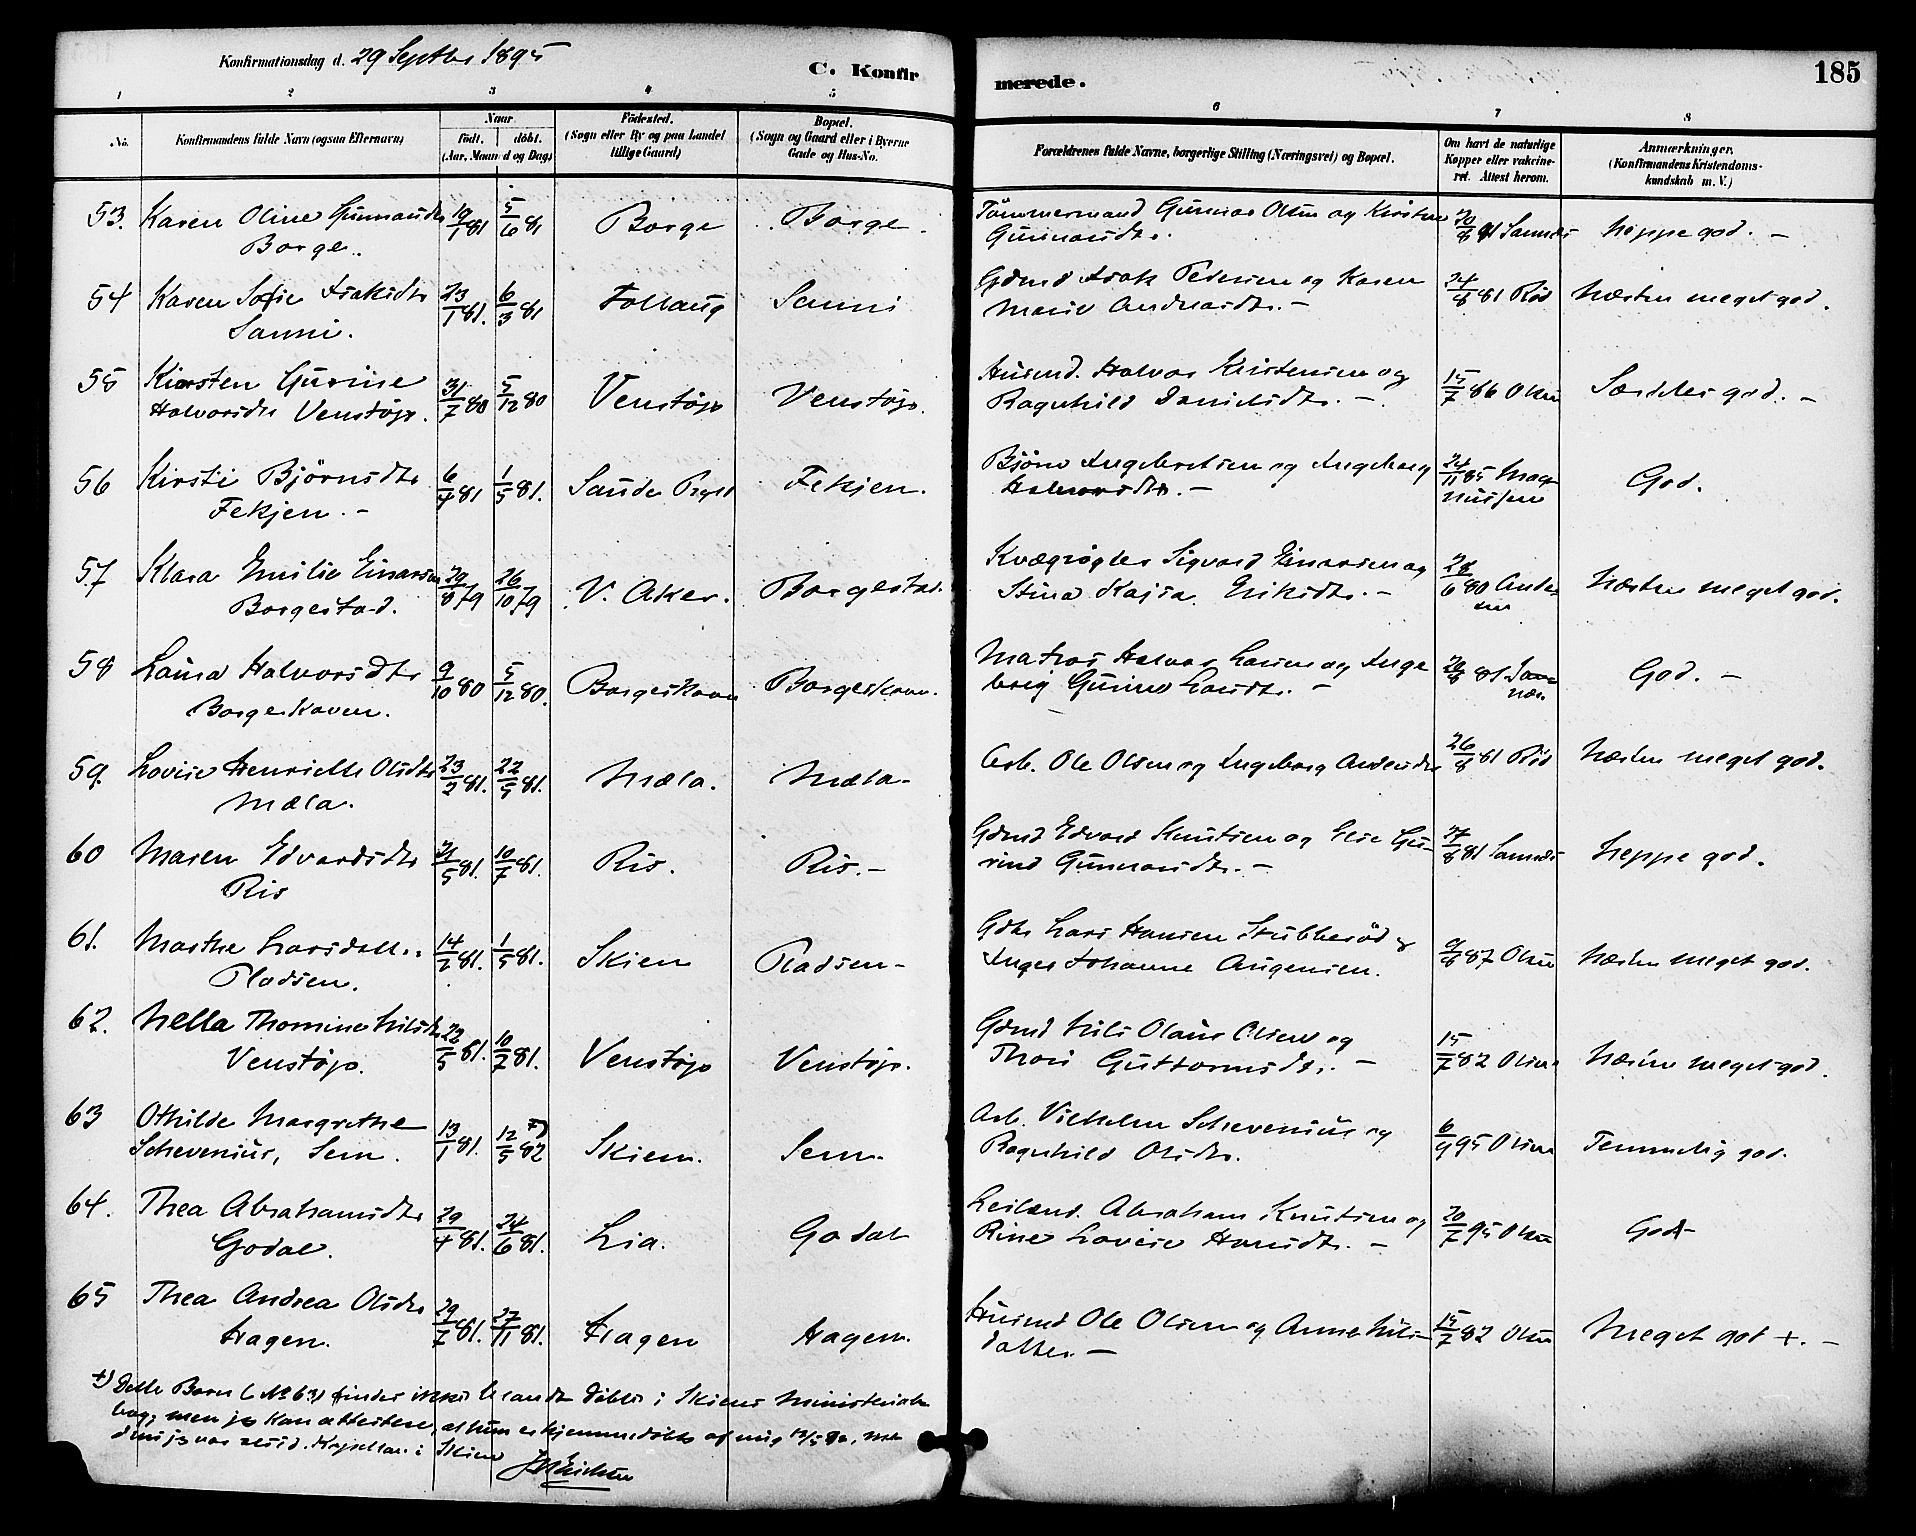 Konfirmationsdag d. 29 Septbr 1895
C. Konfirmerede.
185
1 2 3 4 5 6 7 8
No.
Konfirmandens fulde Navn (ogsaa Efternavn)
Naar
födt. döbt.
(Aar, Maaned og Dag)
Födested.
(Sogn eller By og paa Landet
tillige Gaard)
Bopæl.
(Sogn og Gaard eller i Byerne
Gade og Hus-No.
Forældrenes fulde Navne, borgerlige Stilling (Næringsvei) og Bopæl.
Om havt de naturlige
Kopper eller vakcine-
ret. Attest herom.
Anmærkninger,
(Konfirmandens Kristendoms-
kundskab m. V.)
53. Karen Oline Gunnarsdtr 19/1 81 5/6 81 Borge Borge. Tömmermand Gunnar Olsen og Kirstine 20/8 81 Sannæs Neppe god. –
Borge. Gunnarsdtr.
54 Karen Sofie Isaksdtr 23/1 81. 6/3 81 Follaug Sanni Gdmd Isak Pedersen og Karen 24/8 81 Röd Næsten meget god.
Sanni. Marie Andreasdtr. –
55 Kirsten Gurine 31/7 80 5/12 80 Venstöp Venstöp. Husmd. Halvor Kristensen og 15/7 86 Olsen Særdeles god. –
Halvorsdtr Venstöp. Ragnhild Danielsdtr. –
56 Kirsti Björnsdtr 6/4 81 1/5 81. Saude Prgld Fekjen. Björn Ingebretsen og Ingeborg 24/11 85 Mag- God.
Fekjen. – Halvorsdtr. – nussen
57 Klara Emilie Einarsen 29/8 79 26/10 79 V. Aker. Borgestad. Kvægrögter Sigvard Einarsen og 28/6 80 Ander- Næsten meget god.
Borgestad. Stina Kajsa Eriksdtr. – sen
58 Laura Halvorsdtr 9/10 80 5/12 80. Borgeskoven Borgeskoven. Matros Halvor Larsen og Inge 20/8 81 San- God. –
Borgeskoven. borg Gurine Larsdtr. – næs.
59. Lovise Henriette Olsdtr 23/2 81. 22/5 81. Mæla. Mæla. Arb. Ole Olsen og Ingeborg Andersdtr 26/8 81 Röd Næsten meget god.
Mæla.
60 Maren Edvardsdtr 21/5 81. 10/7 81. Ris. Ris. – Gdmd Edvard Knutsen og Else Gu- 27/8 81 Sannæs Neppe god.
Ris rine Gunnarsdtr. –
61. Marthe Larsdatter 14/2 81. 1/5 81. Skien Pladsen – Gdbr Lars Hansen Stubberöd & 9/8 87 Olsen Næsten meget god.
Pladsen. Inger Johanne Augensen.
62. Nella Thomine Nilsdtr 22/5 81. 10/7 81. Venstöp Venstöp. Gdmd Nils Olaus Olsen og 15/7 82 Olsen Næsten meget god.
Venstöp. Thori Guttormsdtr. –
63 Othilde Margrethe 13/1 81. 12/5 82 +) Skien. Sem. Arb. Vilhelm Schevenius og 6/9 95 Olsen Temmelig god.
Schevenius, Sem. Ragnhild Olsdtr.
64. Thea Abrahamsdtr 29/4 81. 24/6 81. Lia. Godal Leilænd. Abraham Knutsen og 20/7 95 Olsen God
Godal. Rine Lovise Hansdtr. –
65 Thea Andrea Olsdtr 29/7 81. 27/11 81. Hagen Hagen. Husmd Ole Olsen og Anne Nils- 15/7 82 Olsen Meget god +. –
Hagen. datter. –
+) Dette Barn (No 63) findes ikke blandt döbte i Skiens Ministerial-
bog, men jeg kan attestere, at hun er hjemmedöbt af mig 12/5 82,
da jeg var resid. Kapellan i Skien